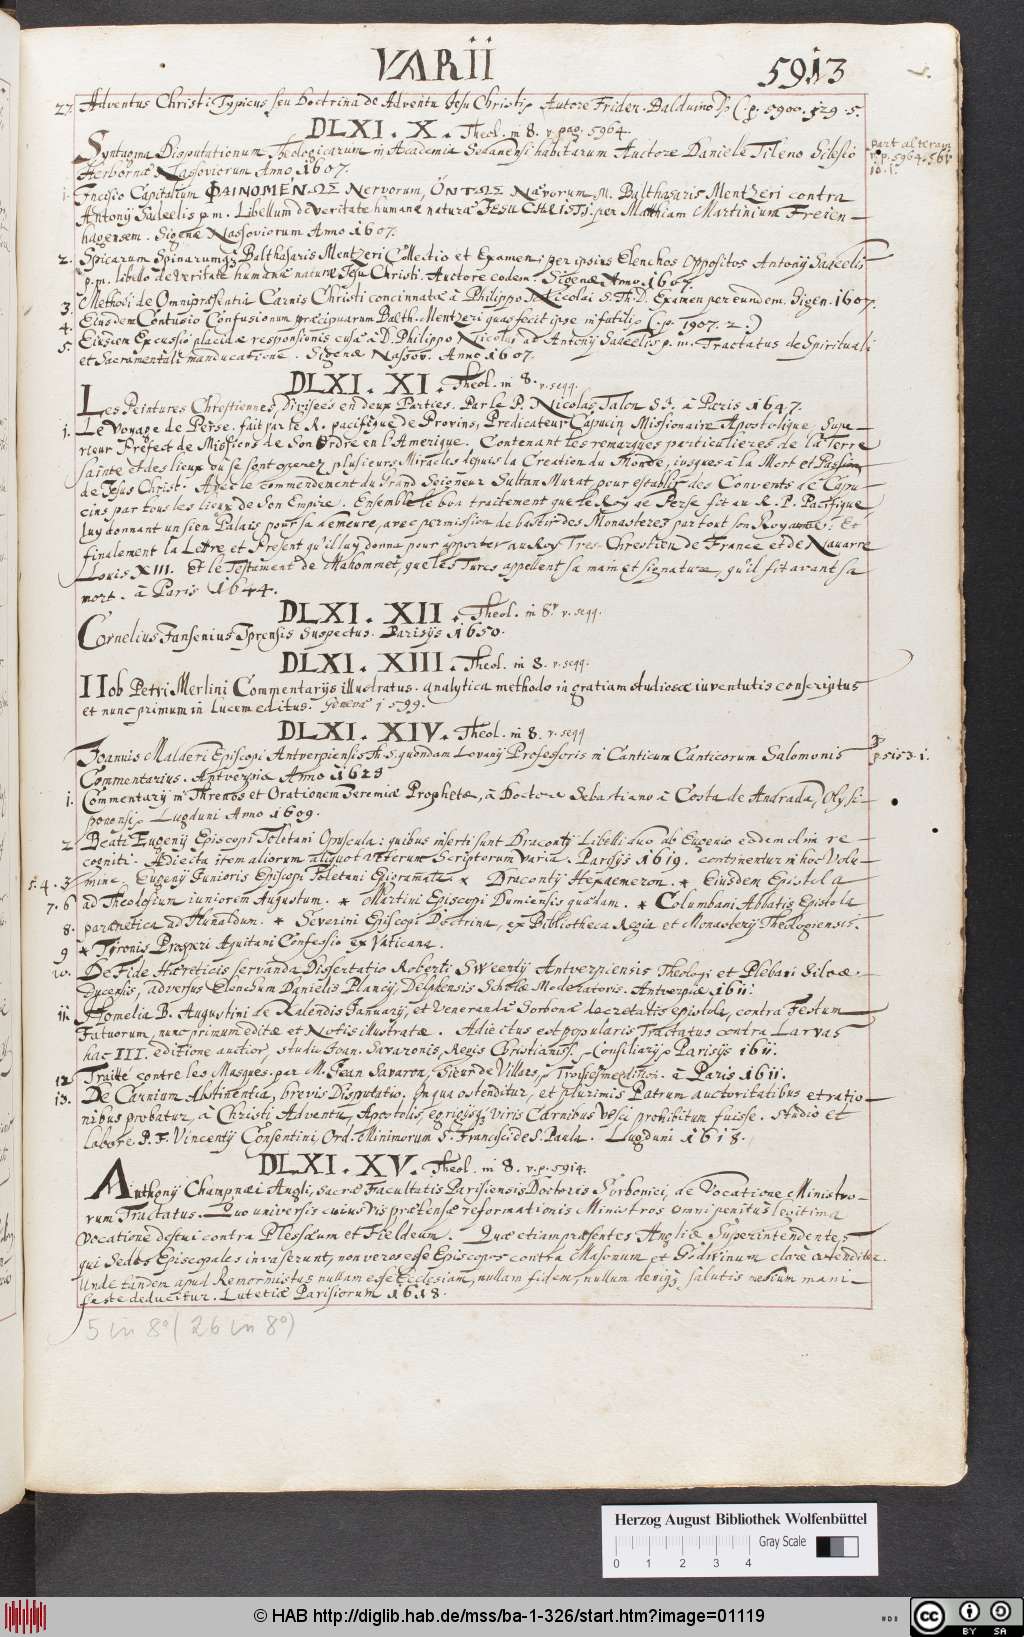 VARII
5913
27. Adventus Christi Typicus seu Doctrina de Adventu Jesu Christi, Autore Frider. Balduino D. (: p. 5900. 529. 5.
DLXI. X. Theol. in 8. v. pag. 5964.
Syntagma Disputationum Theologicarum in Academia Sedanensi habitarum Auctore Daniele Tileno Silesio
Herbornæ Nassoviorum Anno 1607.
part. alteram
v. p. 5964. 561.
10. 1.
1. Incisio Capitalium ΦΑΙΝΟΜΕΝΩΣ Nervorum, ὌΝΤΩΣ Nævorum M. Balthasaris Mentzeri contra
Antonij Sadeelis p. m. Libellum de veritate humanæ naturæ JESU CHRISTI: per Matthiam Martinium Freien-
hagensem. Sigenæ Nassoviorum Anno 1607.
2. Spicarum Spinarumq; Balthasaris Mentzeri Collectio et Examen: per ipsius Elenchos oppositos Antonij Sadeelis
p. m. libello de veritate humanæ naturæ Jesu Christi. Auctore eodem. Sigenæ Anno 1607.
3. Methodi de Omnipræsentia Carnis Christi concinnatæ à Philippo Nicolai S. Th. D. Examen per eundem. Sigen. 1607.
4. Eiusdem Contusio Confusionum præcipuarum Balth. Mentzeri quas fecit ipse in futili, (: p. 1907. 2 :)
5. Eiusdem Excussio placidæ responsionis cusæ à D. Philippo Nicolai ad Antonij Sadeelis p. m. Tractatus de Spirituali
et Sacramentali manducatione. Sigenæ Nassov. Anno 1607.
DLXI. XI. Theol. in 8. v. seqq.
Les Peintures Chrestiennes, Divisees en deux Parties. Par le P. Nicolas Talon S J. à Paris 1647.
1. Le Voyage de Perse. fait par le R. pacifique de Provins, Predicateur Capucin Missionaire Apostolique, Supe-
rieur Prefect de Missions de son Ordre en l'Amerique. Contenant les remarques particulieres de la Terre
sainte et des lieux ou se sont operez plusieurs Miracles depuis la Creation du Monde, iusques à la Mort et Passion
de Jesus Christ. Avec le Commendement du Grand Seigneur Sultan Murat pour establir des Convents de Capu-
cins par tous les lieux de son Empire. Ensemble le bon traitement que le Roy de Perse fit au R. P. Pacifique
luy donnant un sien Palais pour sa demeure, avec permission de bastir des Monasteres par tout son Royaume. Et
finalement la Lettre et Present qu'il luy donna pour apporter au Roy Tres-Chrestien de France et de Navarre
Louis XIII. Et le Testament de Mahommet, que les Turcs appellent sa main et signature, qu'il fit avant sa
mort. à Paris 1644.
DLXI. XII. Theol. in 8º v. seqq.
Cornelius Jansenius Iprensis Suspectus. Parisijs 1650.
DLXI. XIII. Theol. in 8. v. seqq.
IIob Petri Merlini Commentarijs illustratus. analytica methodo in gratiam studiosæ iuventutis conscriptus
et nunc primum in lucem editus. Genevæ 1599.
DLXI. XIV. Theol. in 8. v. seqq
Joannis Malderi Episcopi Antverpiensis Th. S. quondam Lovanij Professoris in Canticum Canticorum Salomonis
Commentarius. Antverpiæ Anno 1628
p. 5153. 1.
1. Commentarij in Threnos et Orationem Jeremiæ Prophetæ, à Doctore Sebastiano à Costa de Andrada, Olysi-
ponensi, Lugduni Anno 1609.
2 Beati Eugenij Episcopi Toletani Opuscula: quibus inserti sunt Dracontij Libelli duo ab Eugenio eodem olim re
cogniti. Adiecta item aliorum aliquot veterum Scriptorum varia. Parisijs 1619. continentur in hoc Volu-
5. 4. 3 mine, Eugenij Junioris Episcopi Toletani Epigramata * Dracontij Hexaemeron. * Eiusdem Epistola
7. 6 ad Theodosium iuniorem Augustum. * Martini Episcopi Dumiensis quædam. * Columbani Abbatis Epistola
8. parænetica ad Hunaldum. * Severini Episcopi Doctrina, ex Bibliotheca Regia et Monasterij Theologiensis.
9 * Tyronis Prosperi Aquitani Confessio ex Vaticana.
10. De Fide Hæreticis servanda Dissertatio Roberti SWeertij Antverpiensis Theologi et Plebani Silvæ-
Ducensis, adversus Elenchum Danielis Plancij, Delphensis Scholæ Moderatoris. Antverpiæ 1611.
11. Homelia B. Augustini de Kalendis Januarij, et Venerandæ Sorbonæ decretalis epistola, contra Festum
Fatuorum, nunc primum editæ et Notis illustratæ. Adiectus est popularis Tractatus contra Larvas
hac III. editione auctior, studio Joan. Savaronis, Regis Christianiss. Consiliarij, Parisijs 1611.
12 Traitté contre les Masques. par M. Jean Savaron, Sieur de Villars, Troisiesme edition. à Paris 1611.
13. De Carnium Abstinentia, brevis Disputatio. In qua ostenditur, et plurimis Patrum auctoritatibus et ratio-
nibus probatur, a Christi Adventu, Apostolis, egregijsq; viris Carnibus vesci prohibitum fuisse. Studio et
labore P. F. Vincentij Consentini, Ord. Minimorum S. Francisci de S. Paula. Lugduni 1618.
DLXI. XV. Theol. in 8. v. p. 5914.
Anthonij Champnæi Angli, sacræ Facultatis Parisiensis Doctoris Sorbonici, de Vocatione Ministro-
rum Tractatus. Quo universis cuiusvis prætensæ reformationis Ministros omni penitus legitima
vocatione destitui contra Plessæum et Fieldeum. Quæ etiam præsentes Angliæ Superintendentes,
qui Sedes Episcopales invaserunt, non veros esse Episcopos contra Masonum et Godwinum clare ostenditur.
Unde tandem apud Reformistas nullam esse Ecclesiam, nullam fidem, nullum deniq; salutis medium mani-
feste deducitur. Lutetiæ Parisiorum 1618.
5 in 8º (26 in 8º)
Herzog August Bibliothek Wolfenbüttel
Gray Scale
0 1 2 3 4
© HAB http://diglib.hab.de/mss/ba-1-326/start.htm?image=01119
cc BY SA